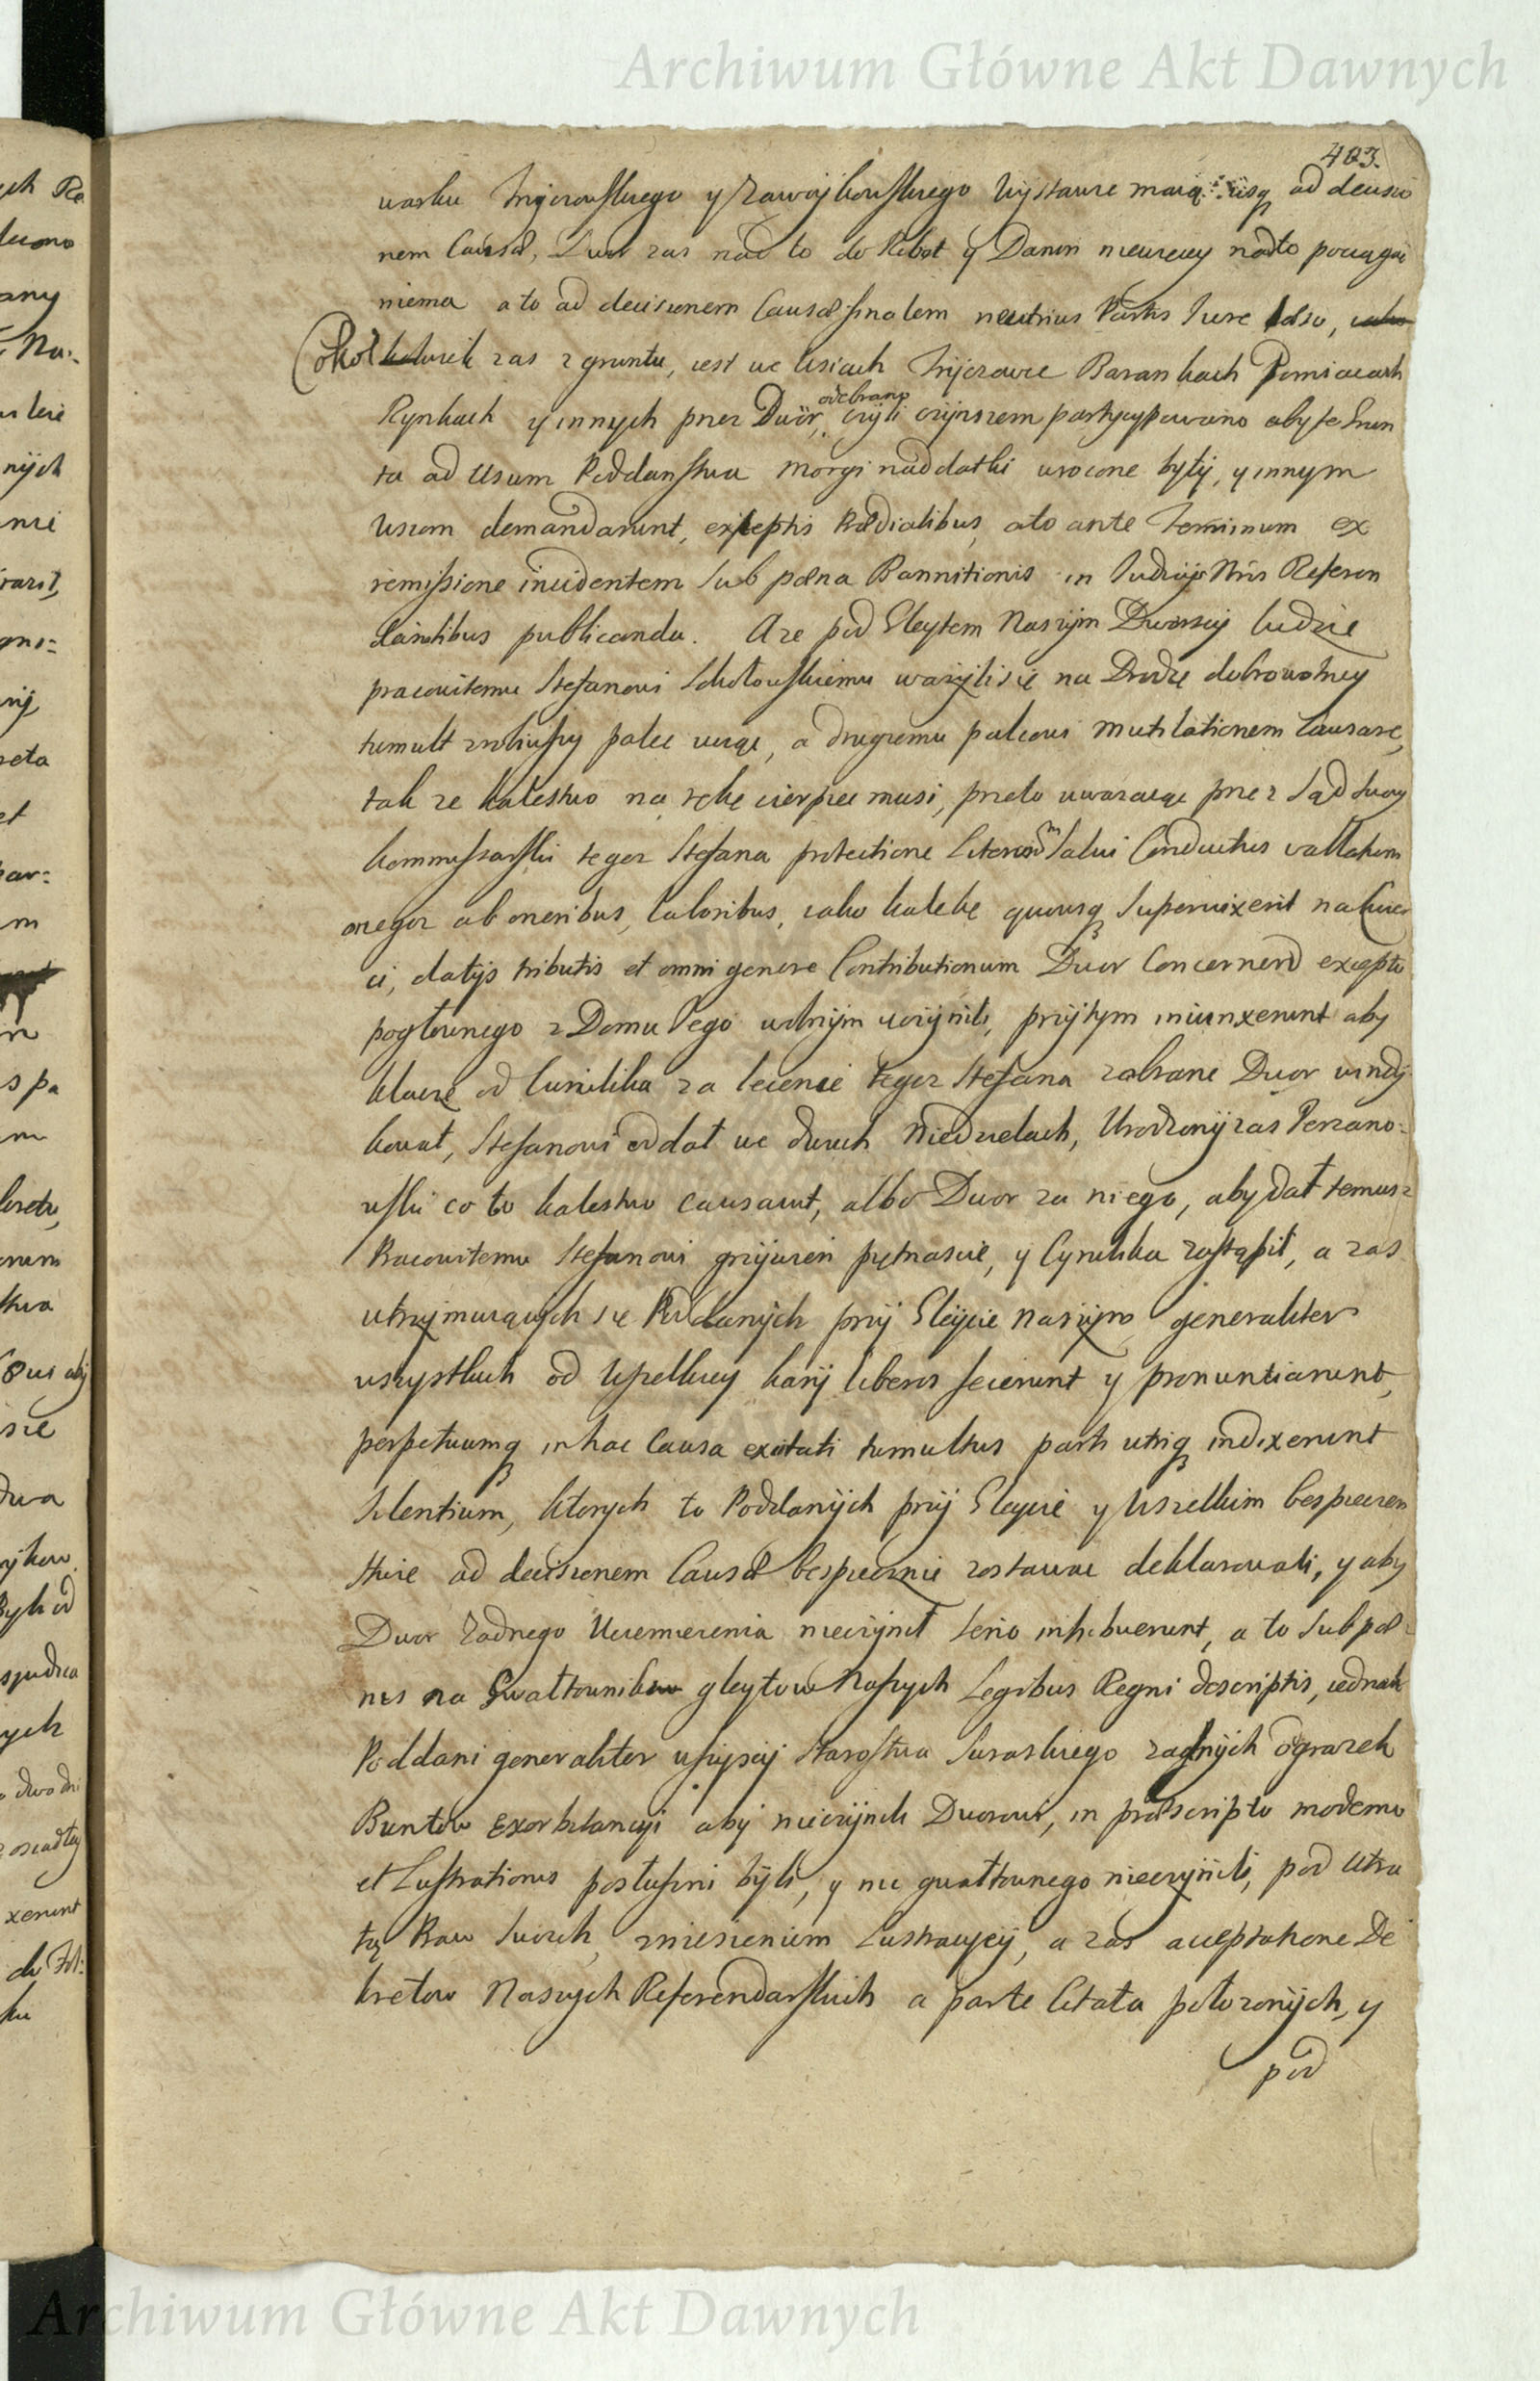 Archiwum Główne Akt Dawnych
403.
warku Inyczowskiego y Zawoykowskiego Wystawie maią usq ad decisio
nem Causæ, Dwor zas nad to do Robot y Danin niewięcey nadto pociągać
niema a to ad decisionem Causæ finalem neutrius Partis Jure læso,
Cokolwiek zas z gruntu, iest we wsiach Barankach
Rynkach y innych przez Dwor, odebrano czyli czynszem partycypowano aby te Grun
ta ad Usum Poddanstwa morgi naddatki wrocone były, y innym
Usum demandarunt, exceptis Prædialibus, ato ante Terminum ex
remissione incidentem sub pæna Bannitionis in Judicijs Nris Referen
darialibus publicanda. A ze pod Gleytem Naszym Dworscy ludzie
pracowitemu Stefanowi Sokołowskiemu wazyli się na Drodze dobrowolney
tumult zrobiwszy palec uciąc, a drugiemu palcowi mutilationem causare,
tak ze kalestwo na rękę cierpiec musi, przeto uwazaiąc przez Sąd swoy
kommissarski tegoz Stefana protectione Literarum salvi Conductus vallatum
onegoz ab oneribus, laboribus, iako kalekę quousq supervixerit
ci, datijs tributis et omni genere Contributionum Dwor Concernend excepto
pogłownego z Domu Iego wolnym uczynili, przytym iniunxerunt aby
klaczę od Cyrulika za leczenie tegoz Stefana zabrane Dwor windy
kował, Stefanowi oddał we dwuch Niedzielach, Urodzony zas Perzano=
wski co to kalestwo causavit, albo Dwor za niego, aby dał temusz
Pracowitemu Stefanowi grzywien piętnascie, y Cyrulika zastąpił, a zas
utrzymuiących się Poddanych przy Gleycie Naszym generaliter
wszystkich od wszelkiey kary liberos fecerunt y pronuntiarunt,
perpetuumq in hac Causa excitati tumultus parti utriq indixerunt
Silentium, ktorych to Poddanych przy Gleycie y wszelkim bespieczen
stwie ad decisionem Causæ bespiecznie zostawac deklarowali, y aby
Dwor zadnego Uciemiezenia nieczynił serio inhibuerunt, a to sub pæ=
nis na Gwałtownikow gleytow Naszych Legibus Regni descriptis, iednak
Poddani generaliter wszyscy Starostwa Suraskiego zadnych ograzek
Buntow Exorbitancyi aby nieczynili Dworowi, in præscripto moderno
et Lustrationis posłuszni byli, y nic gwałtownego nieczynili, pod Utra
tą Praw swoich, zniesieniem Lustracyey, a zas acceptatione De
kretow Naszych Referendarskich a parte Citata połozonych, y
pod
Archiwum Główne Akt Dawnych